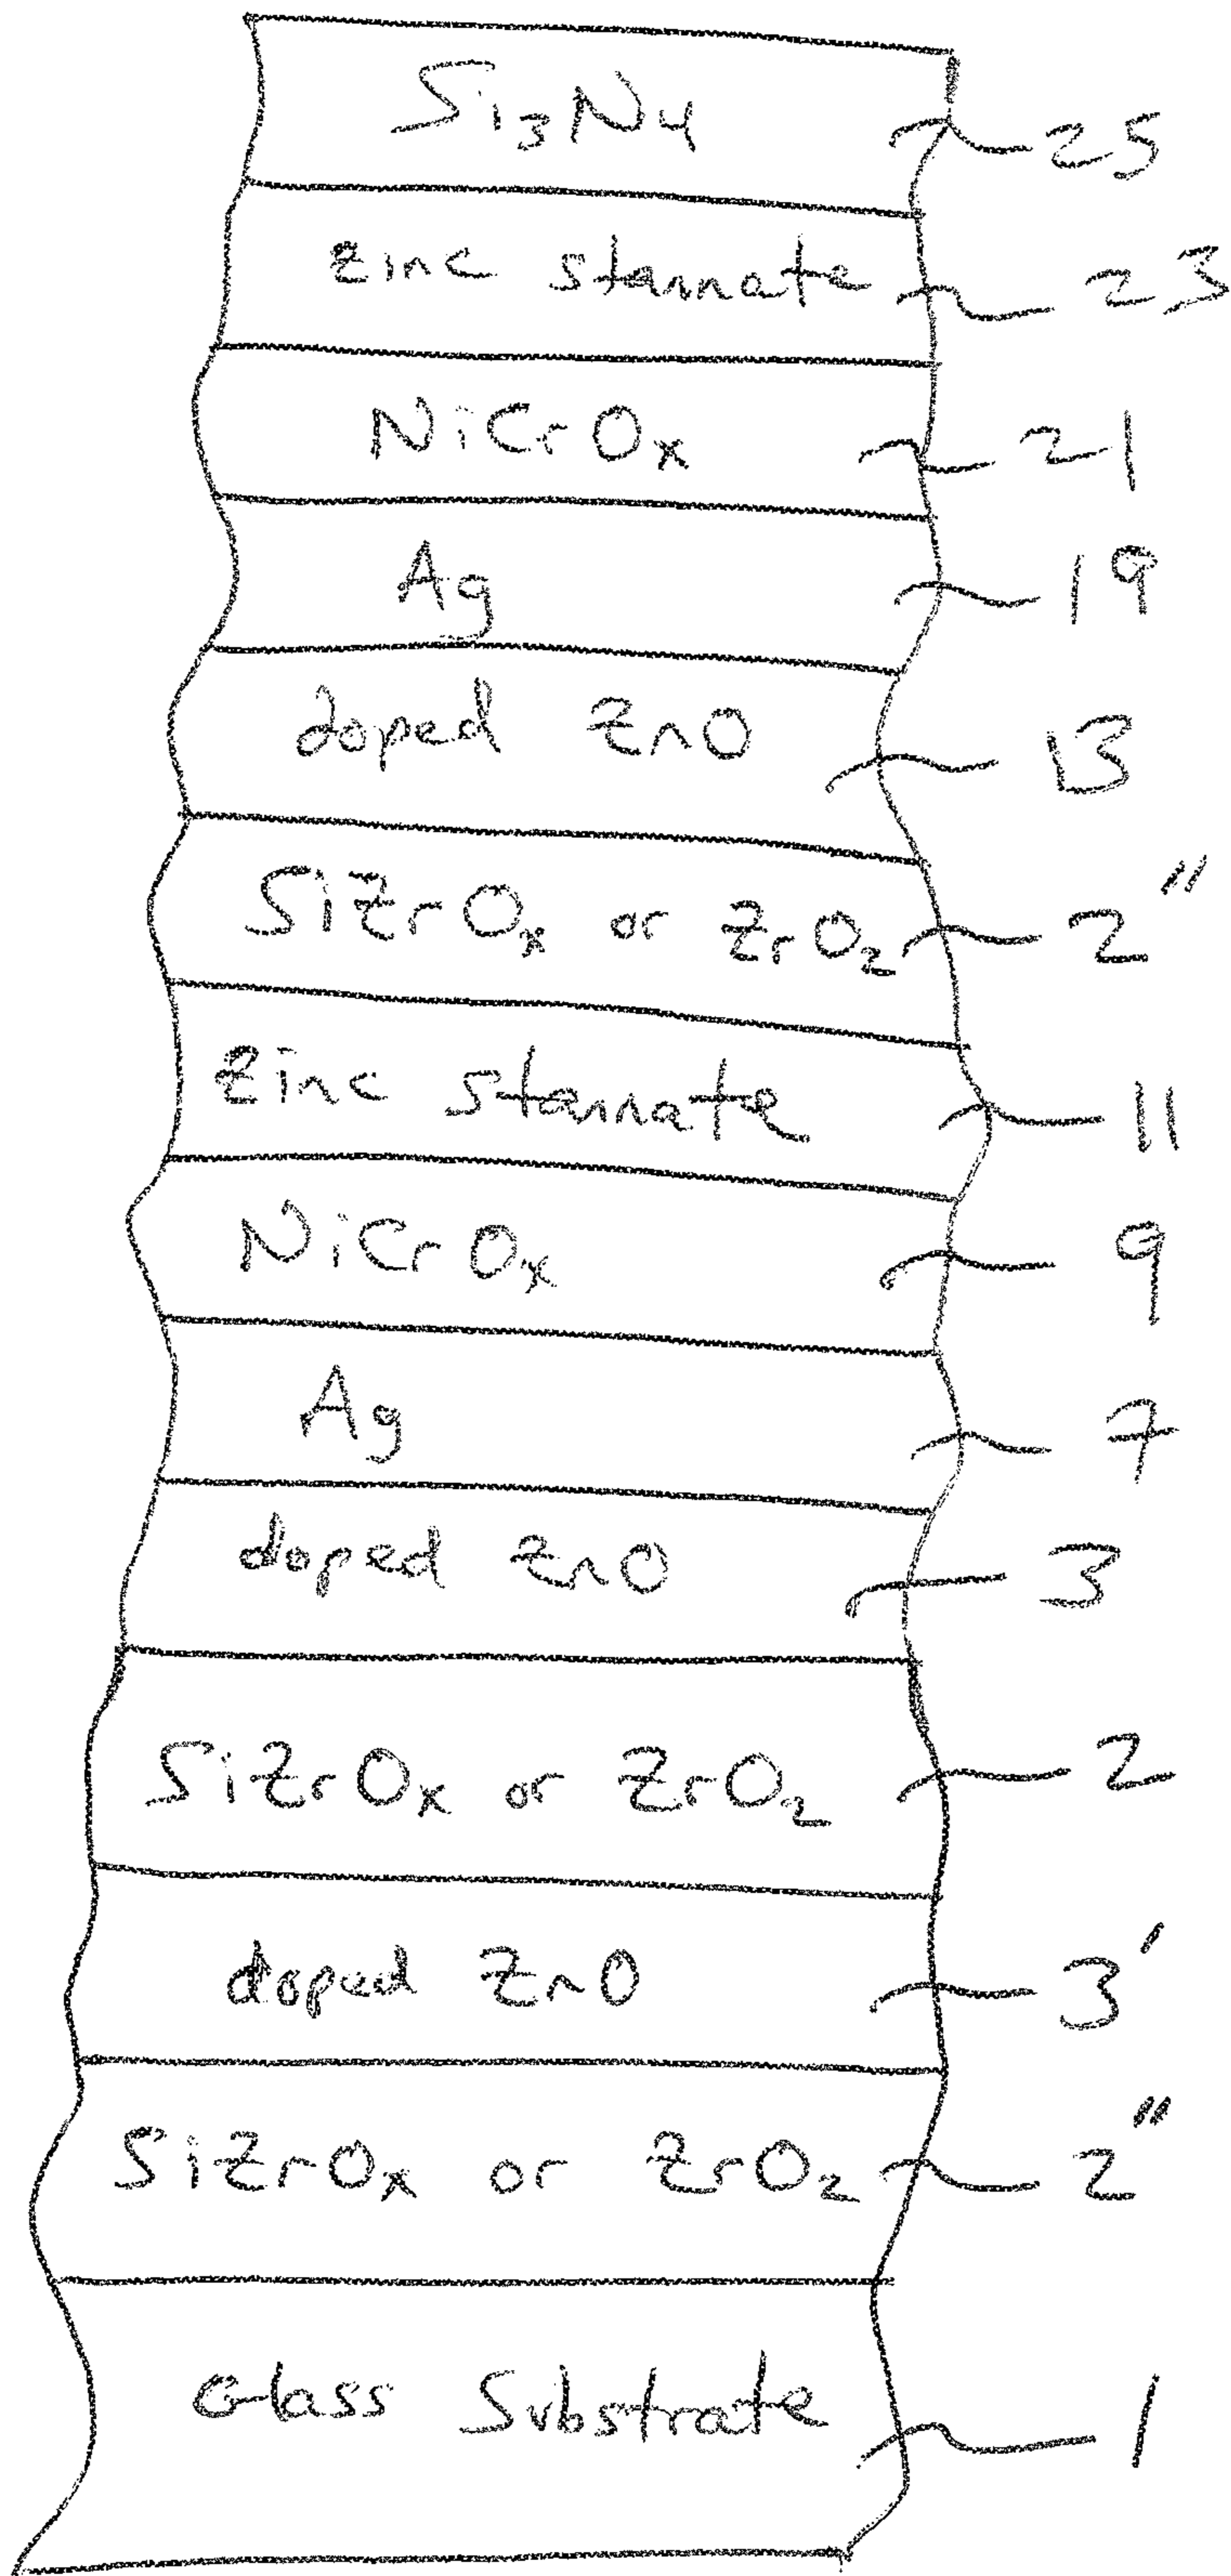 Si₃N₄ 25
zinc stannate 23
NiCrOₓ 21
Ag 19
doped ZnO 13
SiZrOₓ or ZrO₂ 2"
zinc stannate 11
NiCrOₓ 9
Ag 7
doped ZnO 3
SiZrOₓ or ZrO₂ 2
doped ZnO 3'
SiZrOₓ or ZrO₂ 2"
Glass Substrate 1